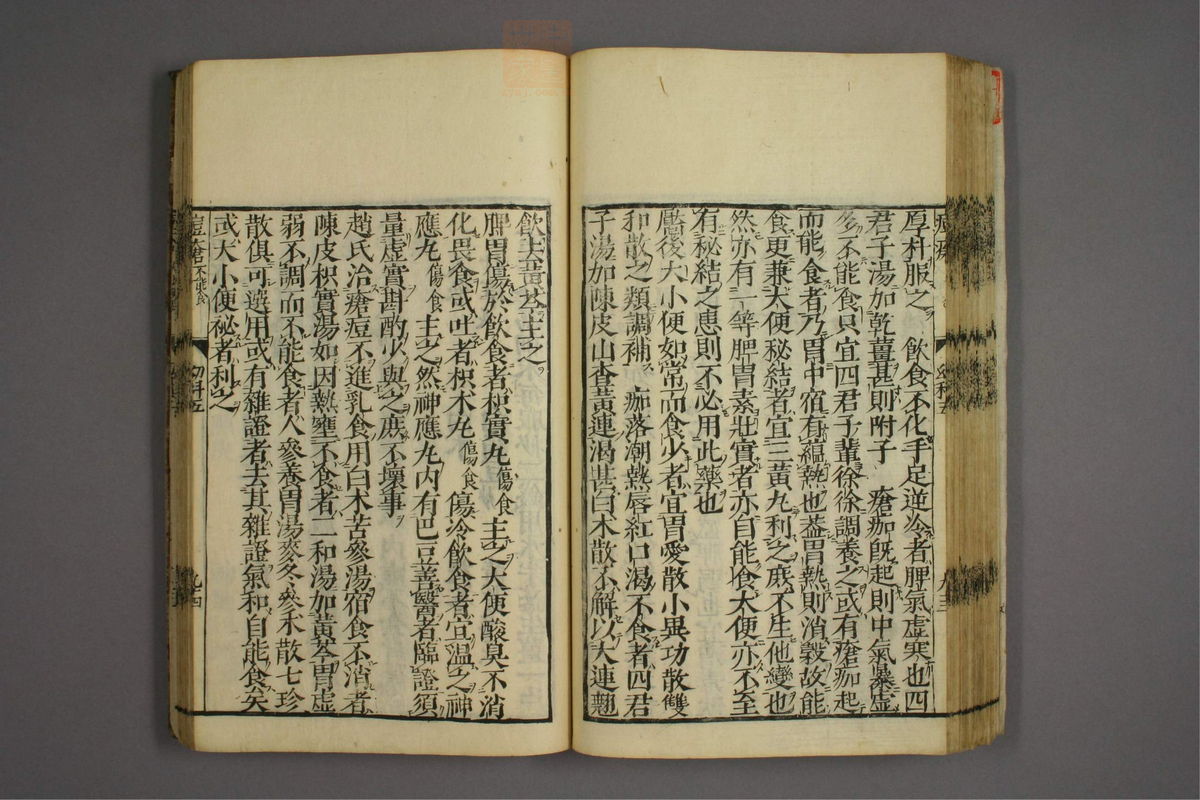 厚朴服之　飲食不化手足逆冷者脾氣虛寒也四
君子湯加乾薑甚則附子　瘡痂既起則中氣暴虛
多不能食只宜四君子輩徐徐調養之或有瘡痂起
而能食者乃胃中宿有蘊熱也蓋胃熱則消穀故能
食更兼大便秘結者宜三黃丸利之庶不生他變也
然亦有一等肥胃素壯實者亦自能食大便亦不至
有秘結之患則不必用此藥也
靨後大小便如常而食少者宜胃愛散小異功散雙
和散之類調補　痂落潮熱唇紅口渴不食者四君
子湯加陳皮山查黃連渴甚白朮散不解以大連翹
飲去黃芩主之
脾胃傷於飲食者枳實丸傷食主之大便酸臭不消
化畏食或吐者枳朮丸傷食傷冷飲食者宜溫之神
應丸傷食主之然神應丸內有巴豆善醫者臨證須
量虛實斟酌少與之庶不壞事
趙氏治瘡痘不進乳食用白朮苦參湯宿食不消者
陳皮枳實湯如因熱壅不食者二和湯加黃芩胃虛
弱不調而不能食者人參養胃湯麥冬參朮散七珍
散俱可選用或有雜證者去其雜證氣和自能食矣
或大小便祕者利之
痘瘡不能食
幼科五
九四